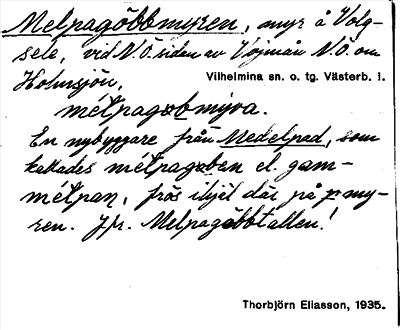 Melpagöbbmyren, myr å Volg-
sele, vid N.Ö. sidan av Vojmån N.Ö. om
Holmsjön,
Vilhelmina sn. o. tg. Västerb. l.
mélpagobmyra.
En nybyggare från Medelpad, som
kallades mélpagoban el. gam-
mélpan, frös ihjäl där på myren.
ren. Jfr. Melpagöbbtallen!
Thorbjörn Eliasson, 1935.